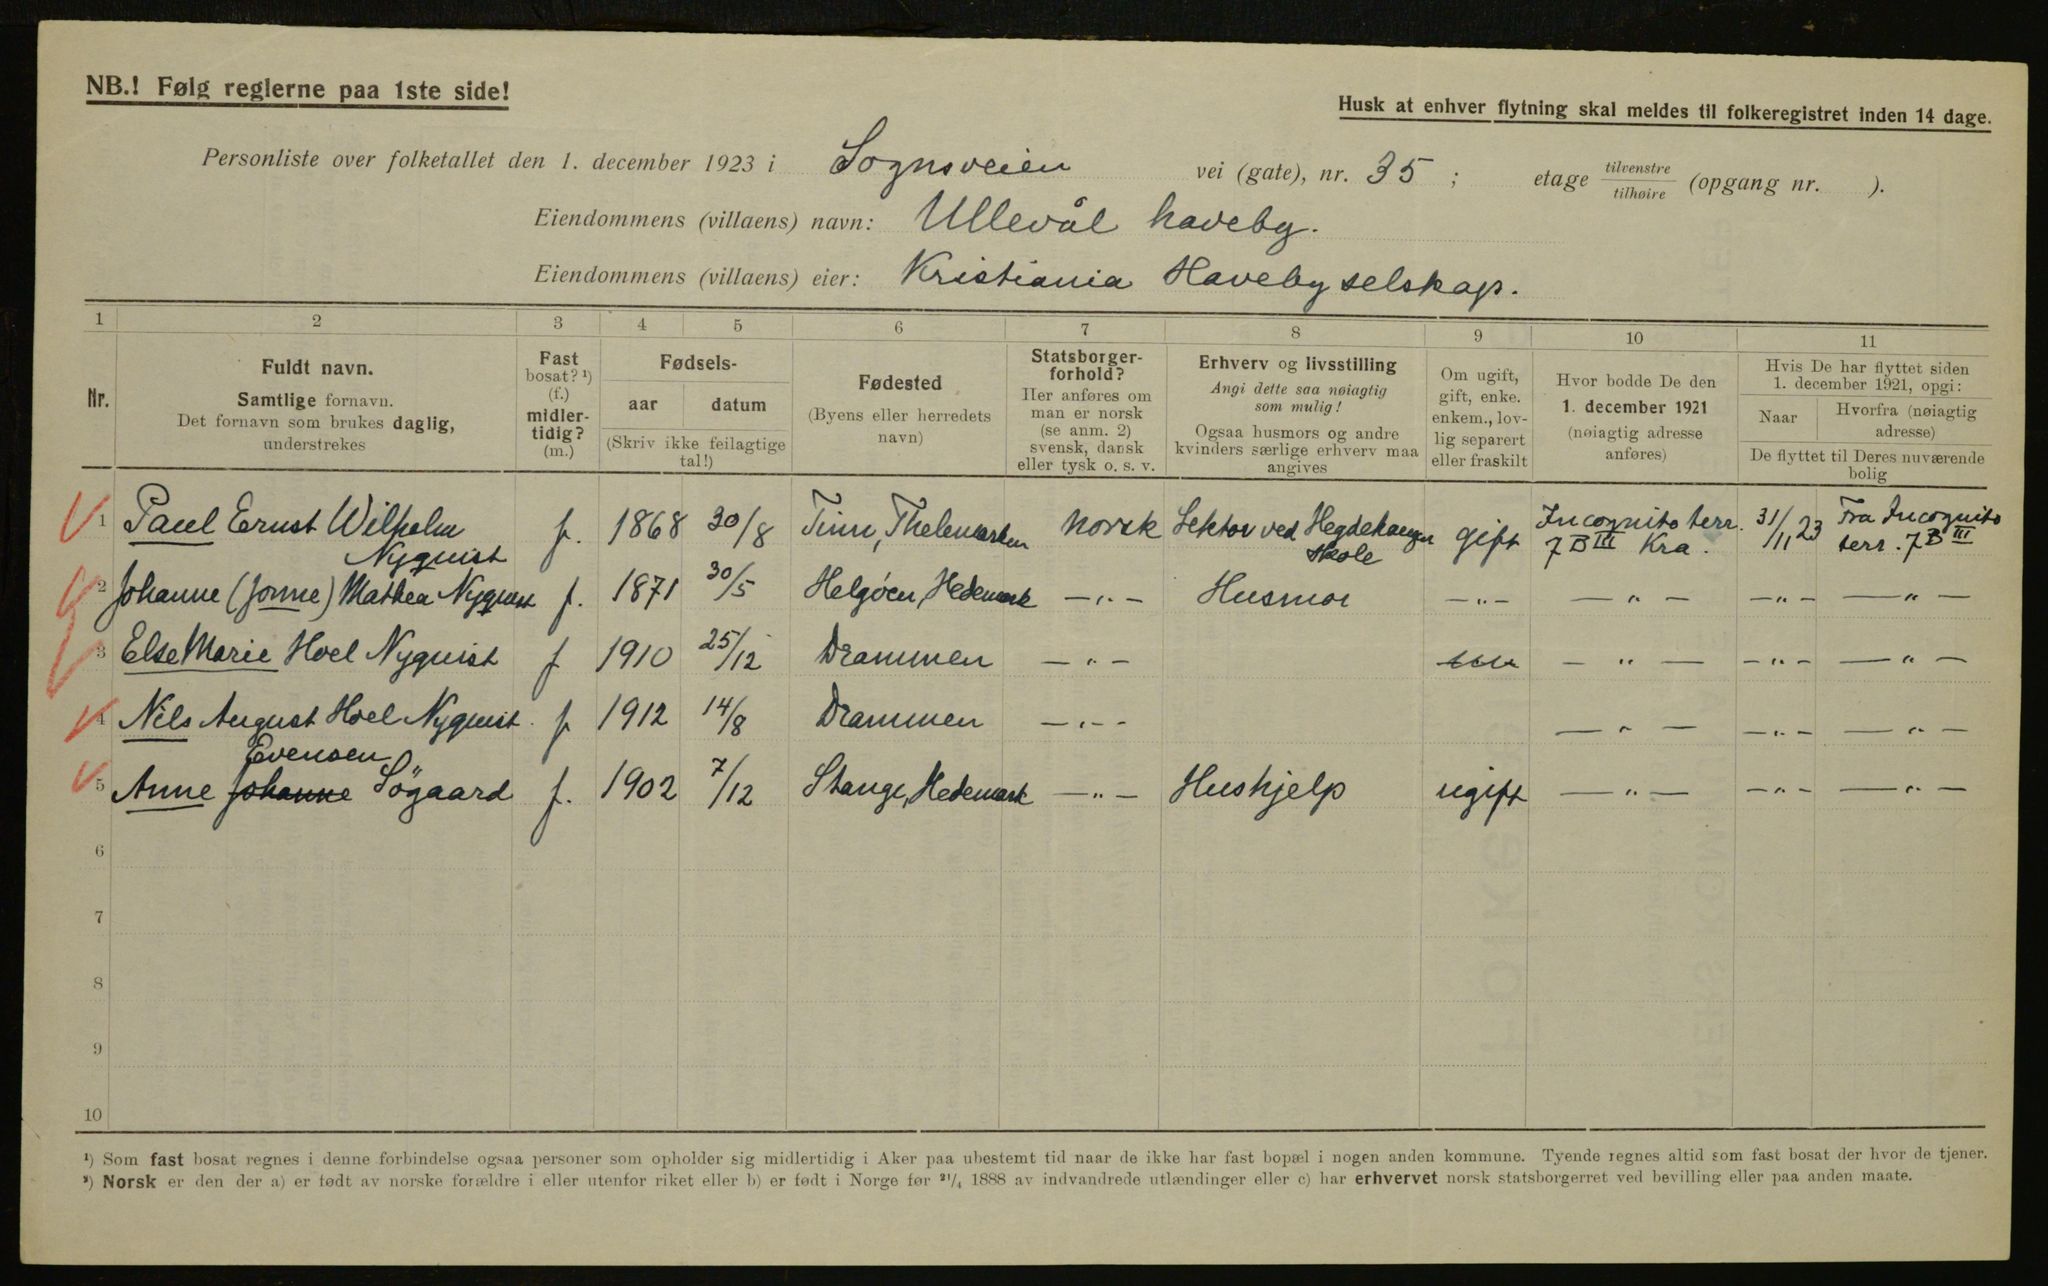 NB.! Følg reglerne paa 1ste side!
Husk at enhver flytning skal meldes til folkeregistret inden 14 dage.
Personliste over folketallet den 1. december 1923 i Sognsveien vei (gate), nr. 35 ; etage tilvenstre/tilhøire (opgang nr. ).
Eiendommens (villaens) navn: Ullevål haveby.
Eiendommens (villaens) eier: Kristiania Havebyselskap.
1 2 3 4 5 6 7 8 9 10 11
Nr.
Fuldt navn.
Samtlige fornavn.
Det fornavn som brukes daglig,
understrekes
Fast
bosat? ¹)
(f.)
midler-
tidig?
(m.)
Fødsels-
aar datum
(Skriv ikke feilagtige
tal!)
Fødested
(Byens eller herredets
navn)
Statsborger-
forhold?
Her anføres om
man er norsk
(se anm. 2)
svensk, dansk
eller tysk o. s. v.
Erhverv og livsstilling
Angi dette saa nøiagtig
som mulig!
Ogsaa husmors og andre
kvinders særlige erhverv maa
angives
Om ugift,
gift, enke.
enkem., lov-
lig separert
eller fraskilt
Hvor bodde De den
1. december 1921
(nøiagtig adresse
anføres)
Hvis De har flyttet siden
1. december 1921, opgi:
Naar
Hvorfra (nøiagtig
adresse)
De flyttet til Deres nuværende
bolig
1 Paul Ernst Wilhelm Nyquist f. 1868 30/8 Tinn, Thelemarken norsk Lektor ved Hegdehaugen Skole gift Incognito terr. 7 B III Kra. 31/11 23 Fra Incognito terr. 7 B III
2 Johanne (Jonne) Mathea Nyquist f. 1871 30/5 Helgøen, Hedemark — " — Husmor — " — — " — — " — — " —
3 Else Marie Hoel Nyquist f 1910 25/12 Drammen — " — — " — — " — — " —
4 Nils August Hoel Nyquist f 1912 14/8 Drammen — " — — " — — " — — " —
Evensen
5 Anne Johanne Søgaard f. 1902 7/12 Stange, Hedemark — " — Hushjelp ugift — " — — " — — " —
6
7
8
9
10
¹) Som fast bosat regnes i denne forbindelse ogsaa personer som opholder sig midlertidig i Aker paa ubestemt tid naar de ikke har fast bopæl i nogen anden kommune. Tyende regnes altid som fast bosat der hvor de tjener.
²) Norsk er den der a) er født av norske forældre i eller utenfor riket eller b) er født i Norge før ²¹/₄ 1888 av indvandrede utlændinger eller c) har erhvervet norsk statsborgerret ved bevilling eller paa anden maate.